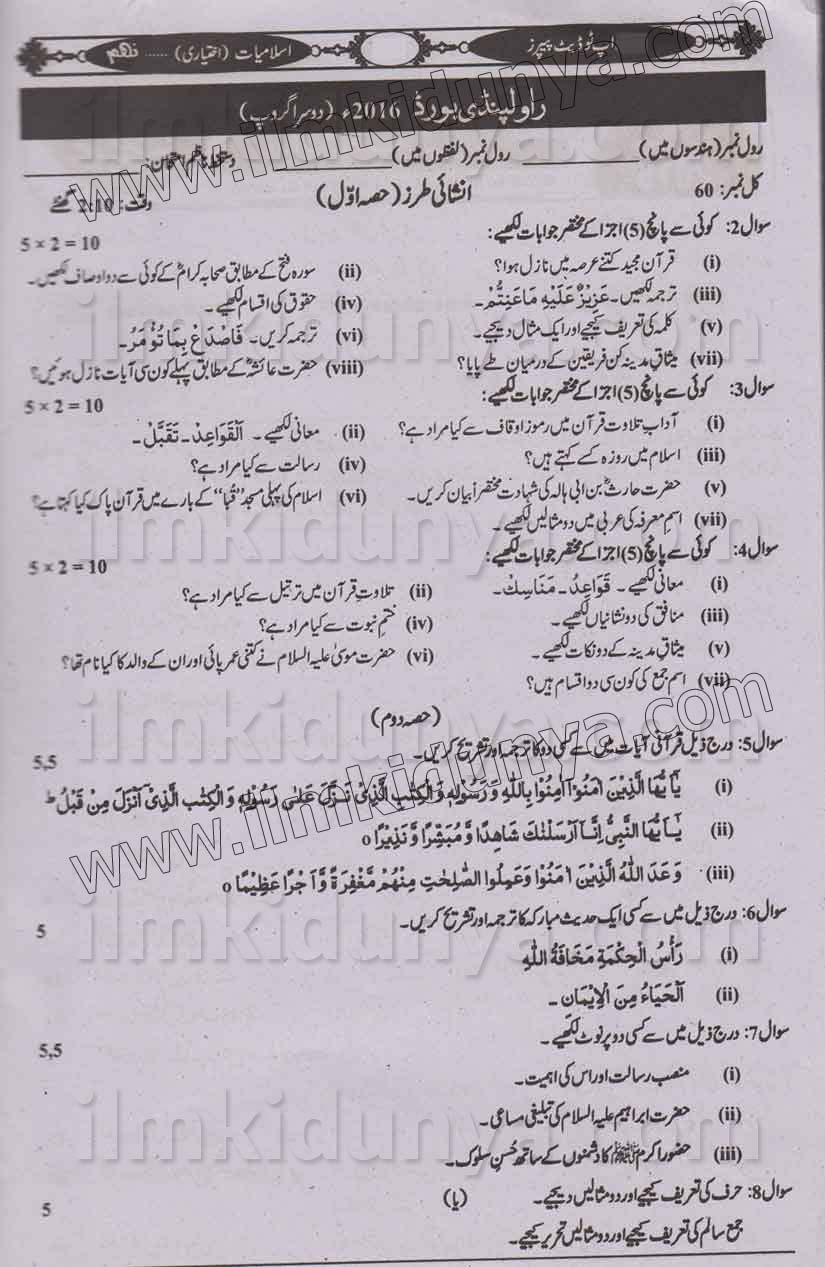 اپ ٹو ڈیٹ پیپرز اسلامیات (اختیاری) ...... نہم
راولپنڈی بورڈ 2016ء (دوسرا گروپ)
رول نمبر (ہندسوں میں) ____________ رول نمبر (لفظوں میں) ____________ دستخط ناظم امتحان:
کل نمبر: 60 انشائی طرز (حصہ اوّل) وقت: 2:10 گھنٹے
سوال2: کوئی سے پانچ (5) اجزا کے مختصر جوابات لکھیے: 5 × 2 = 10
(i) قرآن مجید کتنے عرصہ میں نازل ہوا؟ (ii) سورہ فتح کے مطابق صحابہ کرامؓ کے کوئی سے دو اوصاف لکھیں۔
(iii) ترجمہ لکھیں۔ عَزِيْزٌ عَلَيْهِ مَاعَنِتُّمْ۔ (iv) حقوق کی اقسام لکھیے۔
(v) کلمہ کی تعریف کیجیے اور ایک مثال دیجیے۔ (vi) ترجمہ کریں۔ فَاصْدَعْ بِمَا تُؤْمَرُ۔
(vii) میثاقِ مدینہ کن فریقین کے درمیان طے پایا؟ (viii) حضرت عائشہؓ کے مطابق پہلے کون سی آیات نازل ہوئیں؟
سوال3: کوئی سے پانچ (5) اجزا کے مختصر جوابات لکھیے: 5 × 2 = 10
(i) آدابِ تلاوت قرآن میں رموز اوقاف سے کیا مراد ہے؟ (ii) معانی لکھیے۔ اَلْقَوَاعِدَ۔ تَقَبَّلْ۔
(iii) اسلام میں روزہ کسے کہتے ہیں؟ (iv) رسالت سے کیا مراد ہے؟
(v) حضرت حارثؓ بن ابی ہالہ کی شہادت مختصراً بیان کریں۔ (vi) اسلام کی پہلی مسجد "قُبا" کے بارے میں قرآن پاک کیا کہتا ہے؟
(vii) اسم معرفہ کی عربی میں دو مثالیں لکھیے۔
سوال4: کوئی سے پانچ (5) اجزا کے مختصر جوابات لکھیے: 5 × 2 = 10
(i) معانی لکھیے۔ قَوَاعِدُ۔ مَنَاسِكْ۔ (ii) تلاوتِ قرآن میں ترتیل سے کیا مراد ہے؟
(iii) منافق کی دو نشانیاں لکھیے۔ (iv) ختمِ نبوت سے کیا مراد ہے؟
(v) میثاقِ مدینہ کے دو نکات لکھیے۔ (vi) حضرت موسیٰ علیہ السلام نے کتنی عمر پائی اور ان کے والد کا کیا نام تھا؟
(vii) اسم جمع کی کون سی دو اقسام ہیں؟
(حصہ دوم)
سوال5: درج ذیل قرآنی آیات میں سے کسی دو کا ترجمہ اور تشریح کریں۔ 5,5
(i) يٰٓاَيُّهَا الَّذِيْنَ اٰمَنُوْٓا اٰمِنُوْا بِاللّٰهِ وَرَسُوْلِهٖ وَالْكِتٰبِ الَّذِيْ نَزَّلَ عَلٰى رَسُوْلِهٖ وَالْكِتٰبِ الَّذِيْ اَنْزَلَ مِنْ قَبْلُ ط
(ii) يٰٓاَيُّهَا النَّبِيُّ اِنَّآ اَرْسَلْنٰكَ شَاهِدًا وَّمُبَشِّرًا وَّنَذِيْرًا o
(iii) وَعَدَ اللّٰهُ الَّذِيْنَ اٰمَنُوْا وَعَمِلُوا الصّٰلِحٰتِ مِنْهُمْ مَّغْفِرَةً وَّاَجْرًا عَظِيْمًا o
سوال6: درج ذیل میں سے کسی ایک حدیث مبارکہ کا ترجمہ اور تشریح کریں۔ 5
(i) رَأْسُ الْحِكْمَةِ مَخَافَةُ اللّٰهِ
(ii) اَلْحَيَاءُ مِنَ الْاِيْمَانِ۔
سوال7: درج ذیل میں سے کسی دو پر نوٹ لکھیے۔ 5,5
(i) منصب رسالت اور اس کی اہمیت۔
(ii) حضرت ابراہیم علیہ السلام کی تبلیغی مساعی۔
(iii) حضور اکرم ﷺ کا دشمنوں کے ساتھ حُسنِ سلوک۔
سوال8: حرف کی تعریف کیجیے اور دو مثالیں دیجیے۔ (یا) 5
جمع سالم کی تعریف کیجیے اور دو مثالیں تحریر کیجیے۔
www.ilmkidunya.com
www.ilmkidunya.com
ilmkidunya.com
ilmkidunya.com
ilmkidunya.com
ilmkidunya.com
ilmkidunya.com
ilmkidunya.com